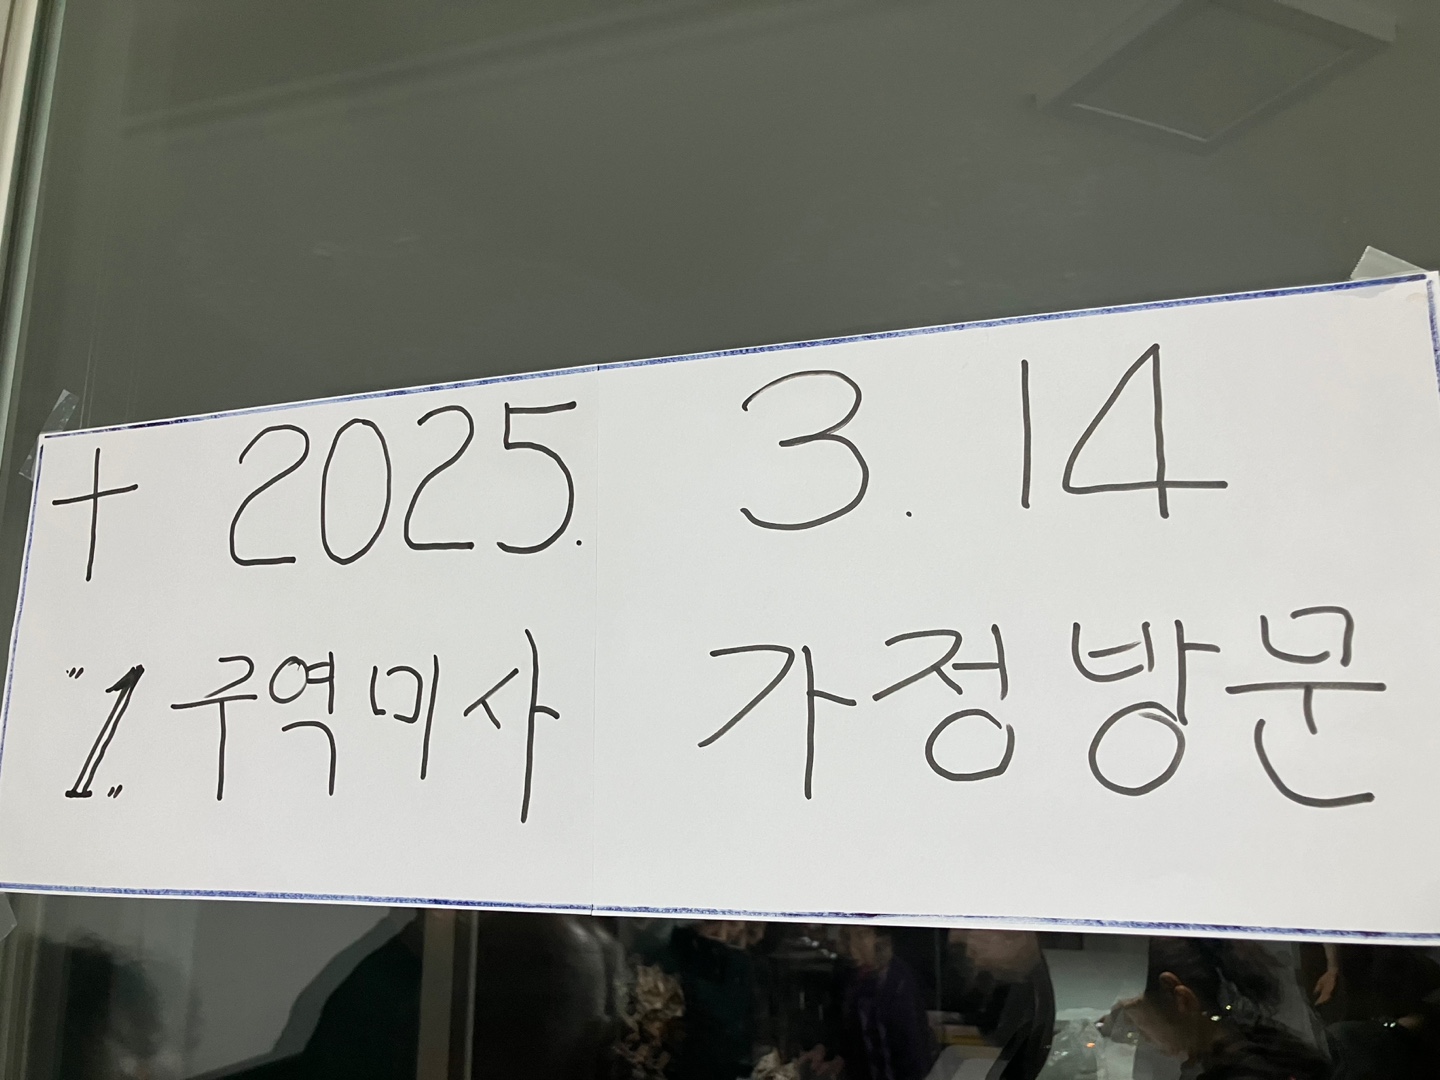 † 2025. 3. 14
"1" 구역미사 가정방문